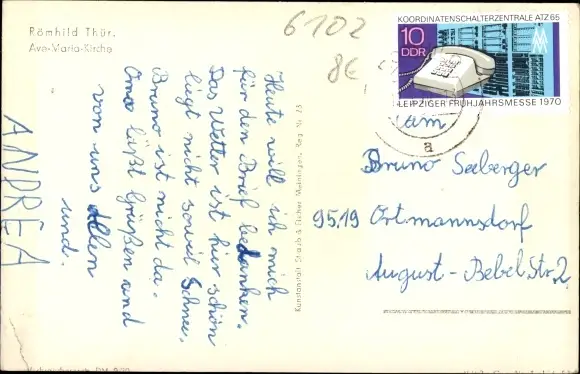 Römhild Thür.
Ave-Maria-Kirche
6102
8€
KOORDINATENSCHALTERZENTRALE ATZ 65
10
DDR
LEIPZIGER FRÜHJAHRSMESSE 1970
a
Fam
Bruno Seeberger
9519 Ortmannsdorf
August-Bebel Str. 2
Heute will ich mich
für den Brief bedanken.
Das Wetter ist hir schön
liegt nicht soviel Schnee.
Bruno ist nicht da.
Oma läßt Grüßen und
von uns Allen
und.
ANDREA